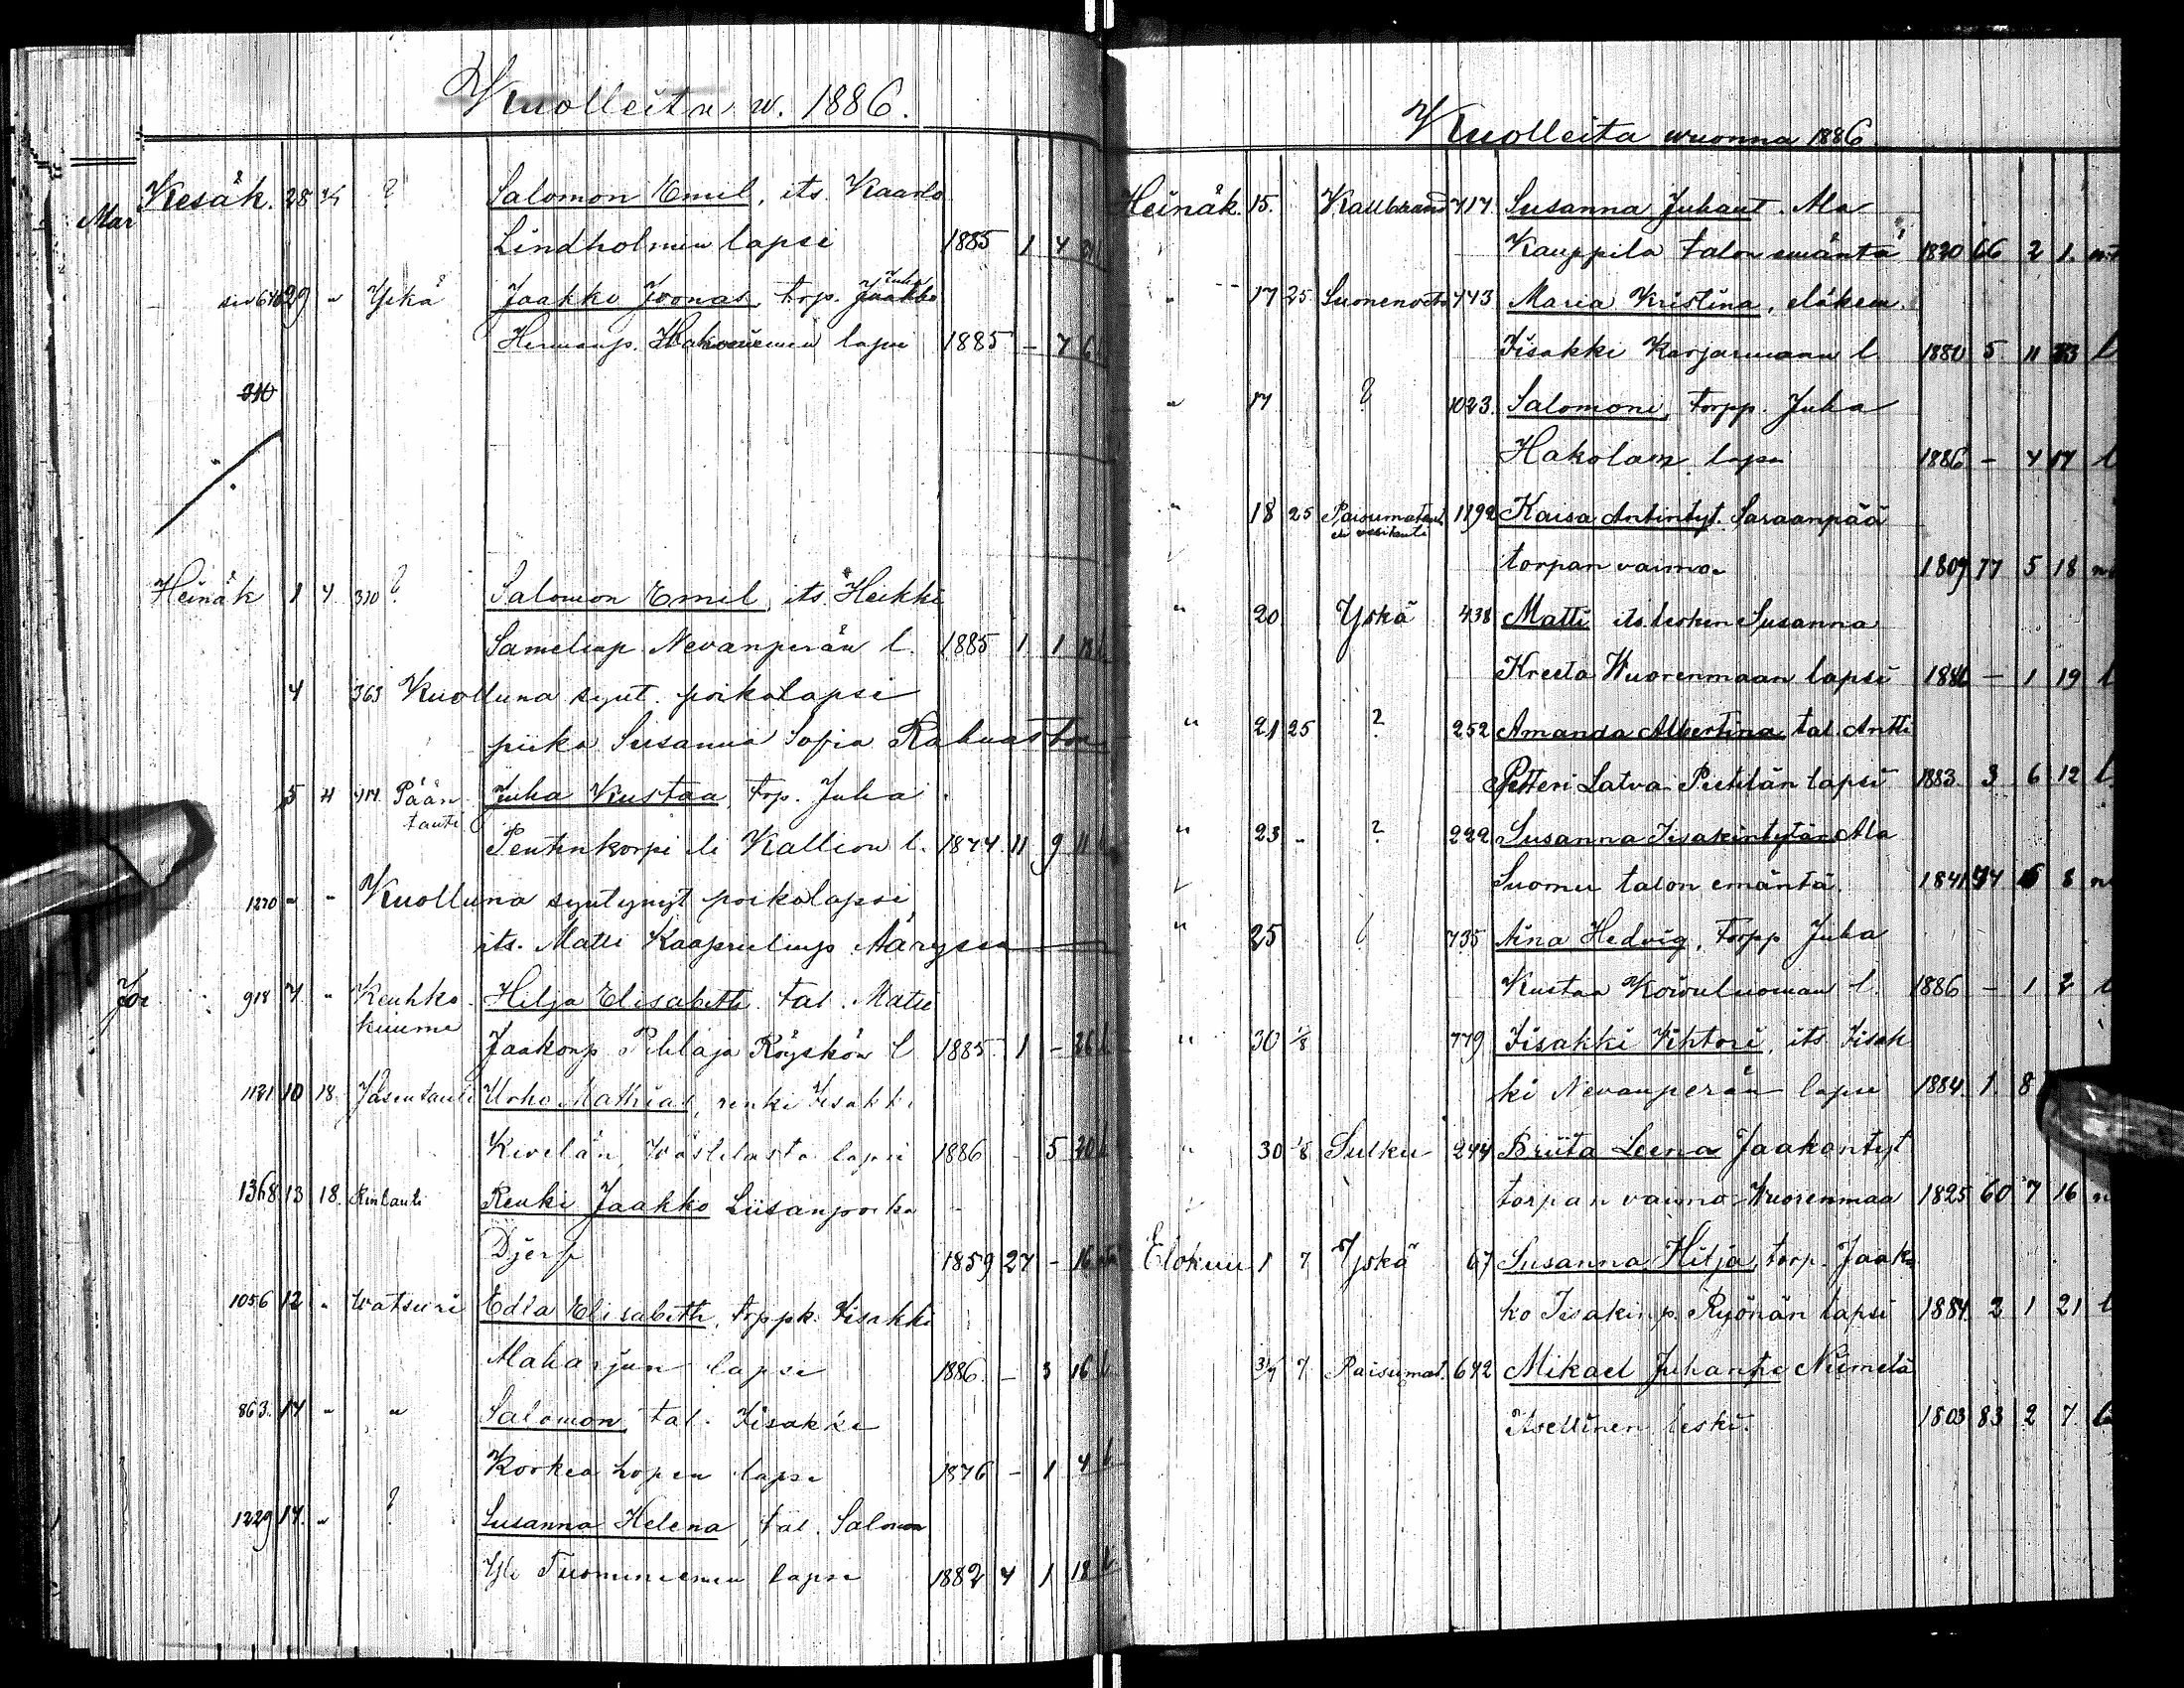 Kuolleita w. 1886.
Kesäk. 28 ? Salomon Emil, its. Kaarlo
Mar
Lindholmin lapsi 1885 1 4
siv 640 29 " Yskä Jaakko Joonas, torp. Jaakko Juha
Hermanp. lapsi 1885 - 7 6
310
Heinäk 1 4 310 ? Salomon Emil, its. Heikki
Samelinp Nevanperän l. 1885 1 1
4 363 Kuolluna synt. poikalapsi
piika Susanna Sofia
5 Pään Juha Kustaa, trp. Juha
tauti
Pentinkorpi l. Kallion l. 1874. 11 9 11
1270 " " Kuolluna syntynyt poikalapsi,
its. Matti Kaaprielinp.
918 7 " Keuhko Hilja Elisabeth tal. Matti
kuume
Jaakonp. Pihlaja Röyskön l 1885. 1 - 26 l
1121 10 18. Urho Mathias, renki Iisakki
Kivelän, lapsi 1886 - 5 20 l
1368 13 18. Rintauti Renki Jaakko Liisanpoika
Djerf 1859 27 - 16
1056 12 " Watsuri Edla Elisabeth, torppk. Iisakki
Maharjun lapsi 1886. - 3 16 l
863. 14 " " Salomon tal. Iisakki
lapsi 1876 - 1 4 l
1229 14. " ? Susanna Helena, tal. Salomon
Yli Tuominiemen lapsi 1882 4 1 18 l
Kuolleita wuonna 1886
Heinäk. 15. Kallbrand 717 Susanna Juhant. Ala
Kauppila talon emäntä 1820 66 2 1.
" 17 25 743 Maria Kristina, eläkem.
Iisakki Karjanmaan l. 1880 5 11 l
" 17 ? 1023. Salomoni, torpp. Juha
Hakolan lapsi 1886 - 4 17 l
" 18 25 Paisumataut. 1192 Kaisa Antintyt. Saraanpää
eli vesitauti
torpan vaimo 1809 77 5 18
" 20 Yskä 438 Matti its. lesken Susanna
Kreeta Wuorenmaan lapsi 1886 - 1 19 l
" 21 25 ? 252 Amanda Albertina tal. Antti
Petteri Latva Pietilän lapsi 1883. 3 6 12 l.
" 23 " ? 222 Susanna Iisakintytär Ala
Suomu talon emäntä. 1841 8
" 25 ? 735 Aina Hedvig, torpp Juha
Kustaa Koivuluoman l. 1886 - 1 2 l
" 30 1/8 779 Iisakki Vihtori, its Iisak
ki Nevanperän lapsi 1884. 1. 8
" 30 1/8 Sulku 244 Briita Leena Jaakontyt
torpan vaimo Wuorenmaa 1825 60 7 16
Elokuu 1 7 Yskä 67 Susanna Hilja, torp. Jaak
ko Iisakinp. Ryönän lapsi 1884. 2 1 21 l
7 Paisumat. 642 Mikael Juhanp. Niemelä
itsellinen leski. 1803 83 2 7.